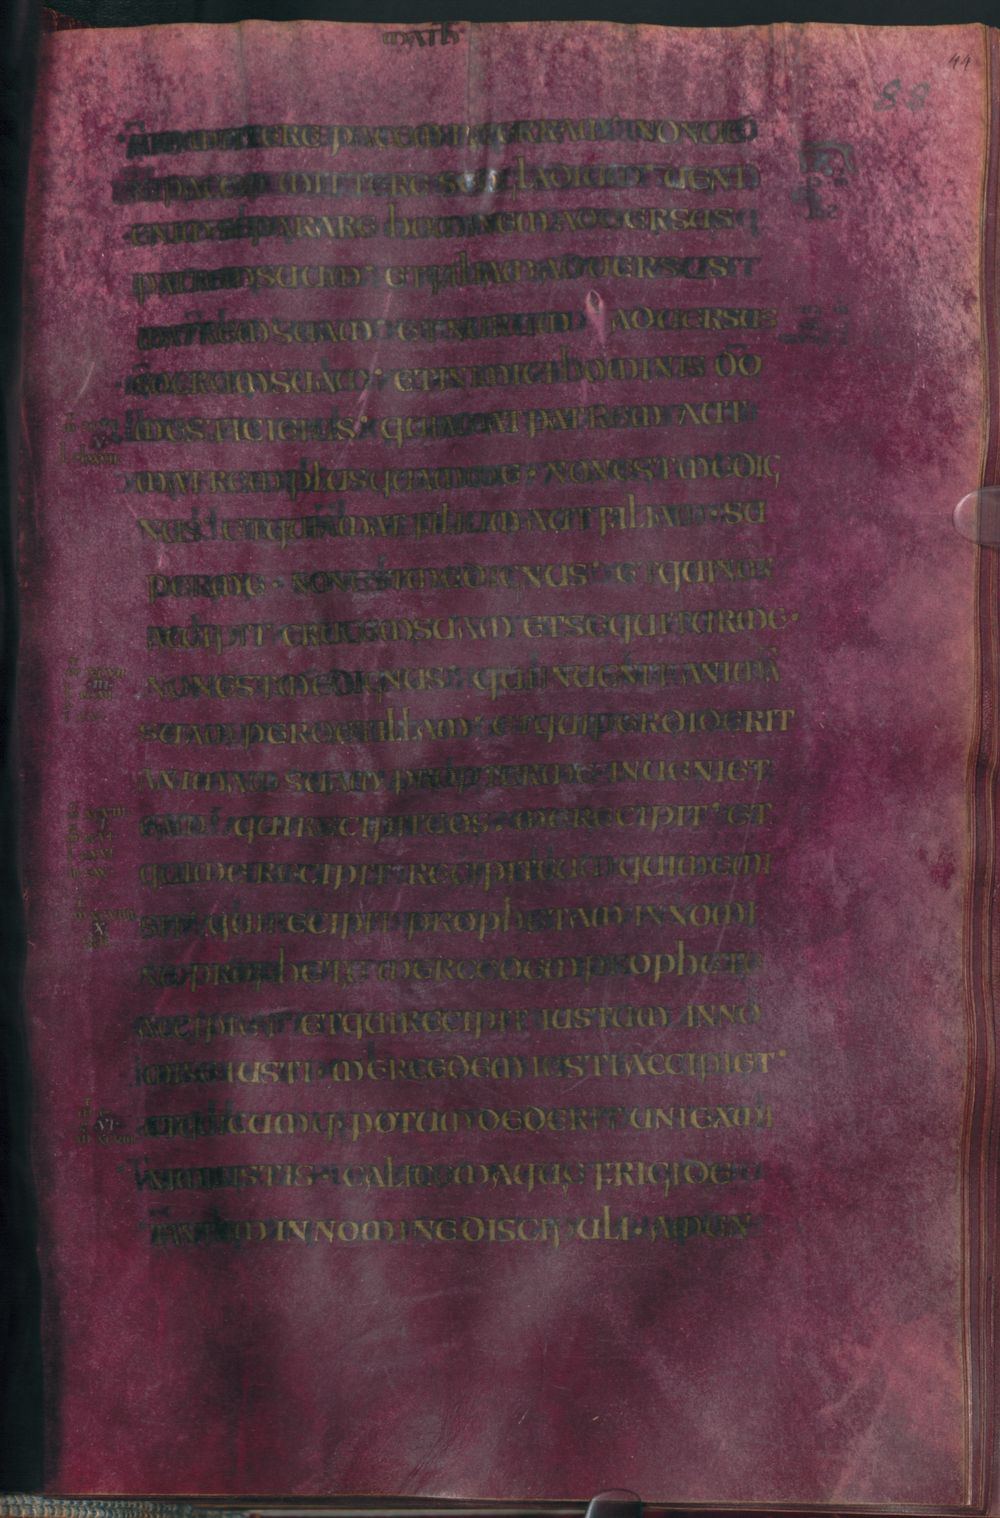 MATH
44
88
AM MITTERE PACEM IN TERRAM NON UE
NI PACEM MITTERE SED GLADIUM UENI
ENIM SEPARARE HOMINEM ADUERSUS
PATREM SUUM ET FILIAM ADUERSUS
MATREM SUAM ET NURUM ADUERSUS
SOCRUM SUAM ET INIMICI HOMINIS DO
MESTICI EIUS QUI AMAT PATREM AUT
MATREM PLUS QUAM ME NON EST ME DIG
NUS ET QUI AMAT FILIUM AUT FILIAM SU
PER ME NON EST ME DIGNUS ET QUI NON
ACCIPIT CRUCEM SUAM ET SEQUITUR ME
NON EST ME DIGNUS QUI INUENIT ANIMĀ
SUAM PERDET ILLAM ET QUI PERDIDERIT
ANIMAM SUAM PROPTER ME INUENIET
EAM QUI RECIPIT UOS ME RECIPIT ET
QUI ME RECIPIT RECIPIT EUM QUI ME MI
SIT QUI RECIPIT PROPHETAM IN NOMI
NE PROPHETE MERCEDEM PROPHETE
ACCIPIET ET QUI RECIPIT IUSTUM IN NO
MINE IUSTI MERCEDEM IUSTI ACCIPIET
ET QUICUMQ POTUM DEDERIT UNI EX MI
NIMIS ISTIS CALICEM AQUĘ FRIGIDE
TANTUM IN NOMINE DISCIPULI AMEN